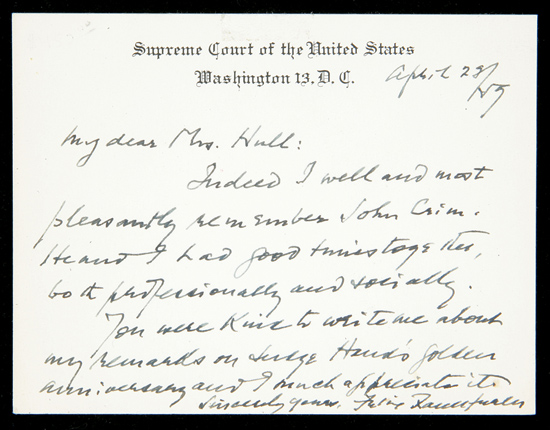 Supreme Court of the United States
Washington 13, D. C.
April 28/
/59
My dear Mrs. Hull:
Indeed I well and most
pleasantly remember John Crim.
He and I had good times together,
both professionally and socially.
You were kind to write me about
my remarks on Judge Hand's golden
anniversary and I much appreciate it.
Sincerely yours, Felix Frankfurter